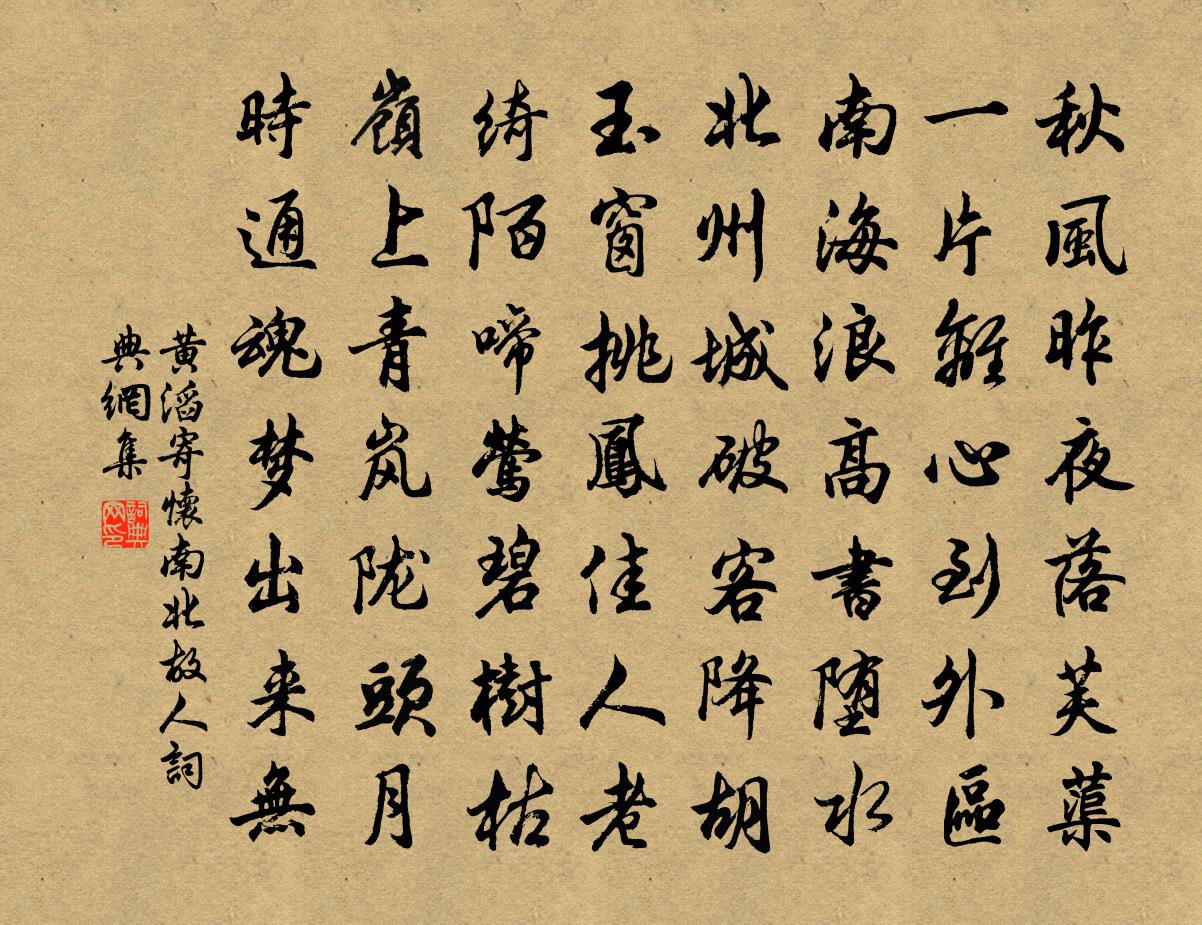 秋風昨夜落芙蕖
一片離心到外區
南海浪高書堕水
北州城破客降胡
玉窗挑鳳佳人老
绮陌啼鶯碧樹枯
嶺上青岚陇頭月
時通魂梦出来無
黄滔寄懷南北故人詞
典網集
詞典网印